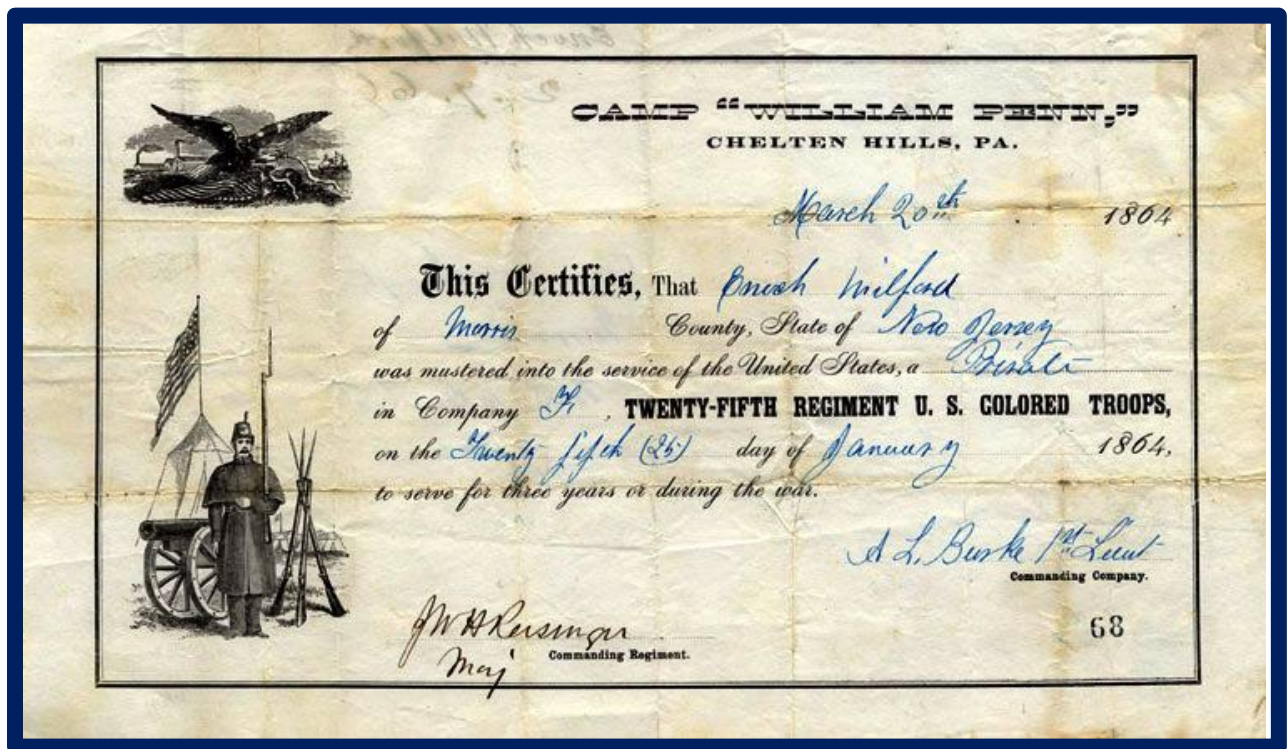 CAMP "WILLIAM PENN,"
CHELTEN HILLS, PA.
March 20th 1864
This Certifies, That Enoch Milford
of Morris County, State of New Jersey
was mustered into the service of the United States, a Private
in Company F, TWENTY-FIFTH REGIMENT U. S. COLORED TROOPS,
on the Twenty fifth (25) day of January 1864,
to serve for three years or during the war.
A L. Burke 1st Lieut
Commanding Company.
J W H Reisinger
Maj Commanding Regiment.
68